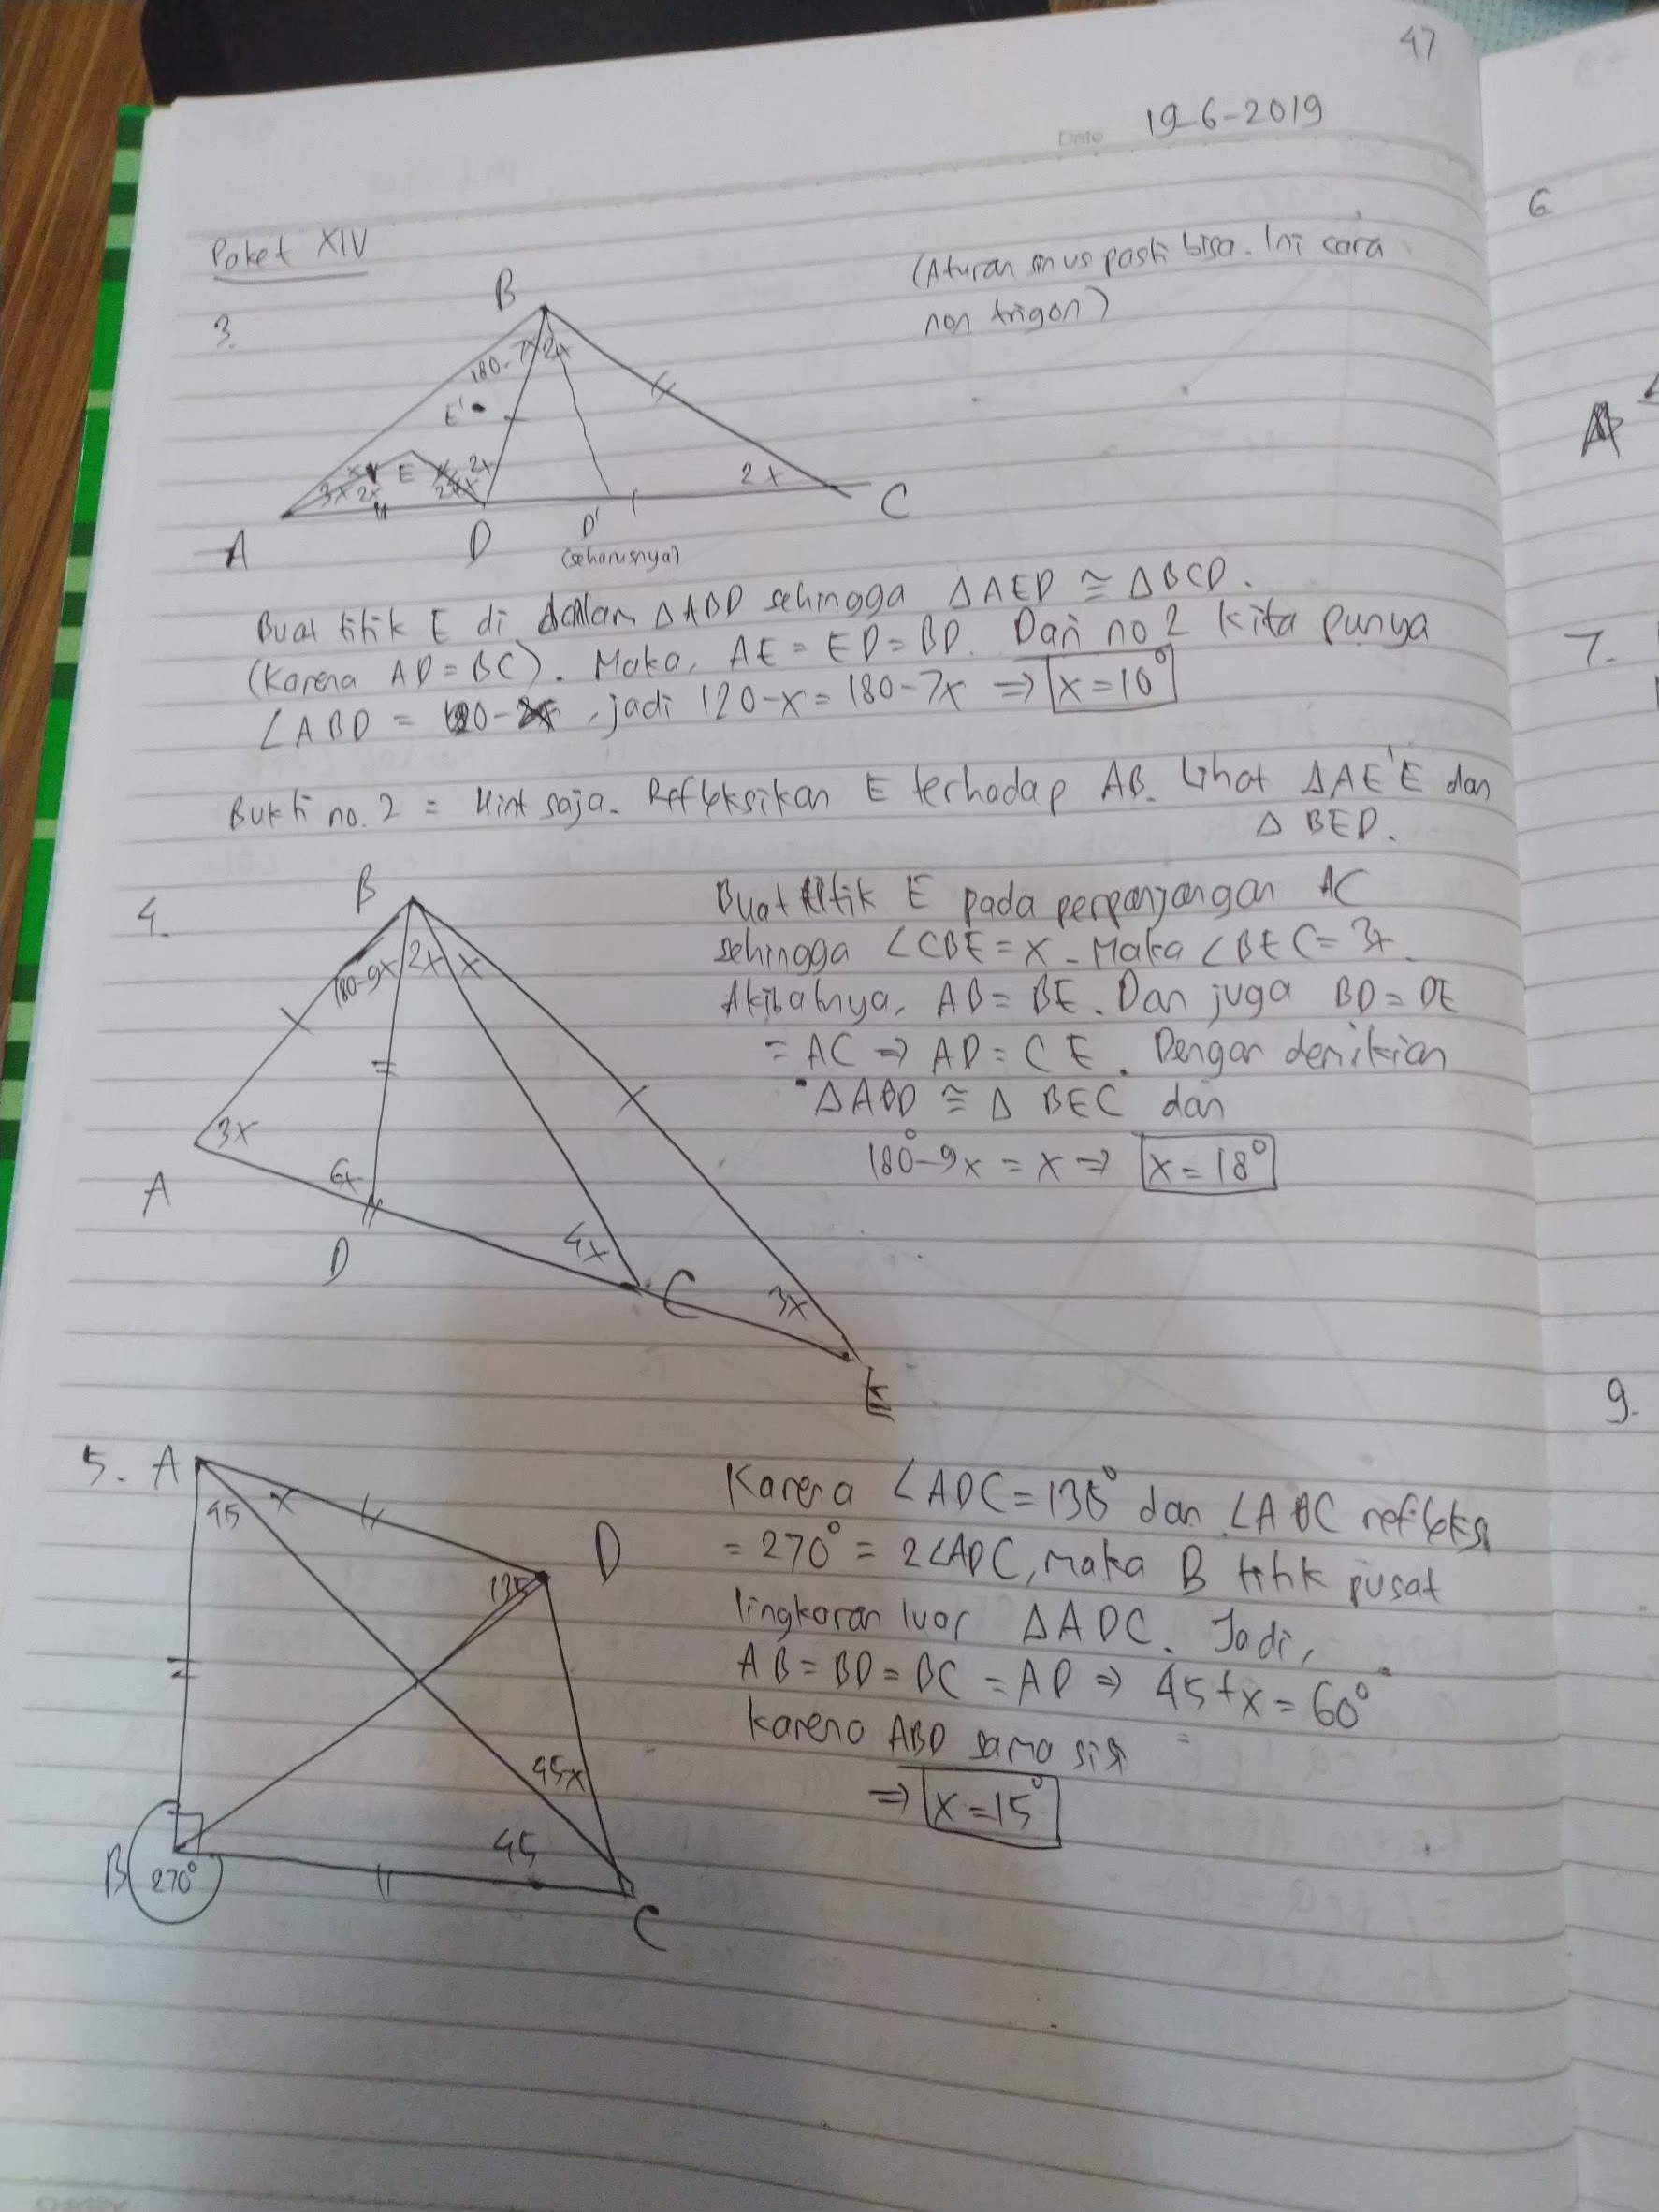 47
Date 19-6-2019
Paket XIV
(Aturan sinus pasti bisa. Ini cara
non trigon)
3.
B
180-7x 2x
E'
x E 2x
3x 2x 2x
2x
A D D' C
(seharusnya)
Buat titik E di dalam △ABD sehingga △AED ≅ △BCD.
(Karena AD=BC). Maka, AE = ED = BD. Dari no 2 kita punya
∠ABD = , jadi 120-x = 180-7x ⇒ x=10°
Bukti no. 2 = Hint saja. Refleksikan E terhadap AB. Lihat △AE'E dan
△BED.
4.
B
180-9x 2x x
3x
6x
A
D
4x
C
3x
E
Buat titik E pada perpanjangan AC
sehingga ∠CBE = x. Maka ∠BEC = 3x.
Akibatnya, AB = BE. Dan juga BD = DE
= AC ⇒ AD = CE. Dengan demikian
△ABD ≅ △BEC dan
180°-9x = x ⇒ x=18°
5. A
45 x
D
135
45-x
45
B 270°
C
Karena ∠ADC=135° dan ∠ABC refleks
= 270° = 2∠ADC, maka B titik pusat
lingkaran luar △ADC. Jadi,
AB = BD = BC = AD ⇒ 45+x = 60°
karena ABD sama sisi
⇒ x=15°
6
A
7.
9.